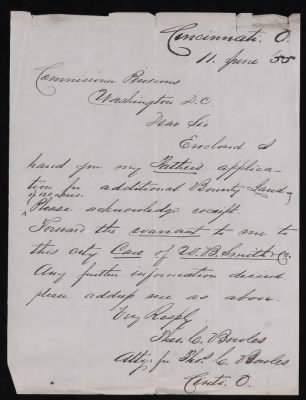 Cincinnati. O.
11. June '55
Commisioner Pensions
Washington D.C.
Dear Sir
Enclosed I
hand you my Father's applica-
tion for additional Bounty Land
of 80 acres.
Please acknowledge receipt.
Forward the warrant to me to
this city Care of W. B. Smith & Co.
Any further information desired
please address me as above.
Very Respfy
Thos. C. Bowles
Atty. for Thos. C. Bowles
Cinti. O.